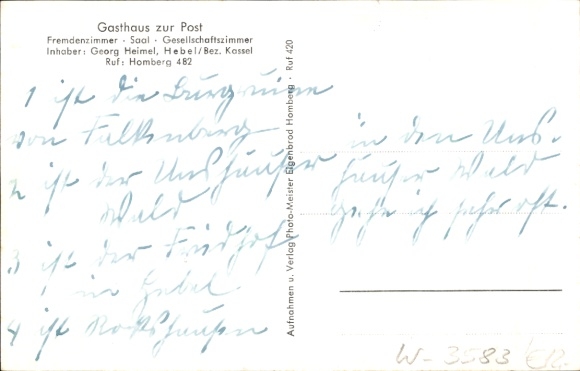 Gasthaus zur Post
Fremdenzimmer · Saal · Gesellschaftszimmer
Inhaber: Georg Heimel, Hebel/Bez. Kassel
Ruf: Homberg 482
1 ist die Burgruine
von Falkenberg
2 ist der Unshäuser
Wald
3 ist der Friedhof
in Hebel
4 ist Rockshausen
Aufnahmen u. Verlag Photo-Meister Eigenbrod Homberg · Ruf 420
in den Uns-
häuser Wald
gehe ich sehr oft.
W-3583